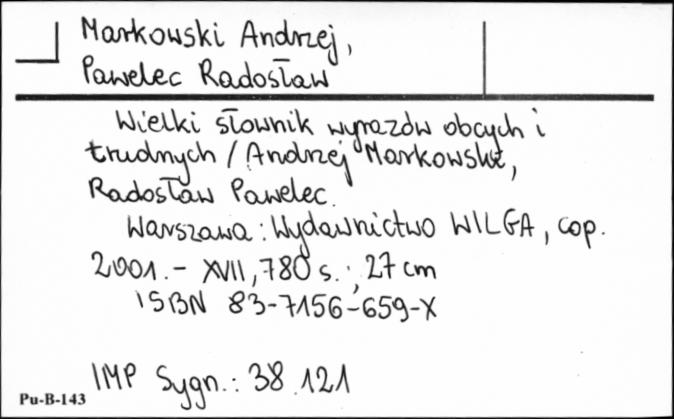 Markowski Andrzej,
Pawelec Radosław
Wielki słownik wyrazów obcych i
trudnych / Andrzej Markowski,
Radosław Pawelec.
Warszawa : Wydawnictwo WILGA, cop.
2001. - XVII, 780 s. ; 27 cm
ISBN 83-7156-659-X
IMP Sygn.: 38.121
Pu-B-143